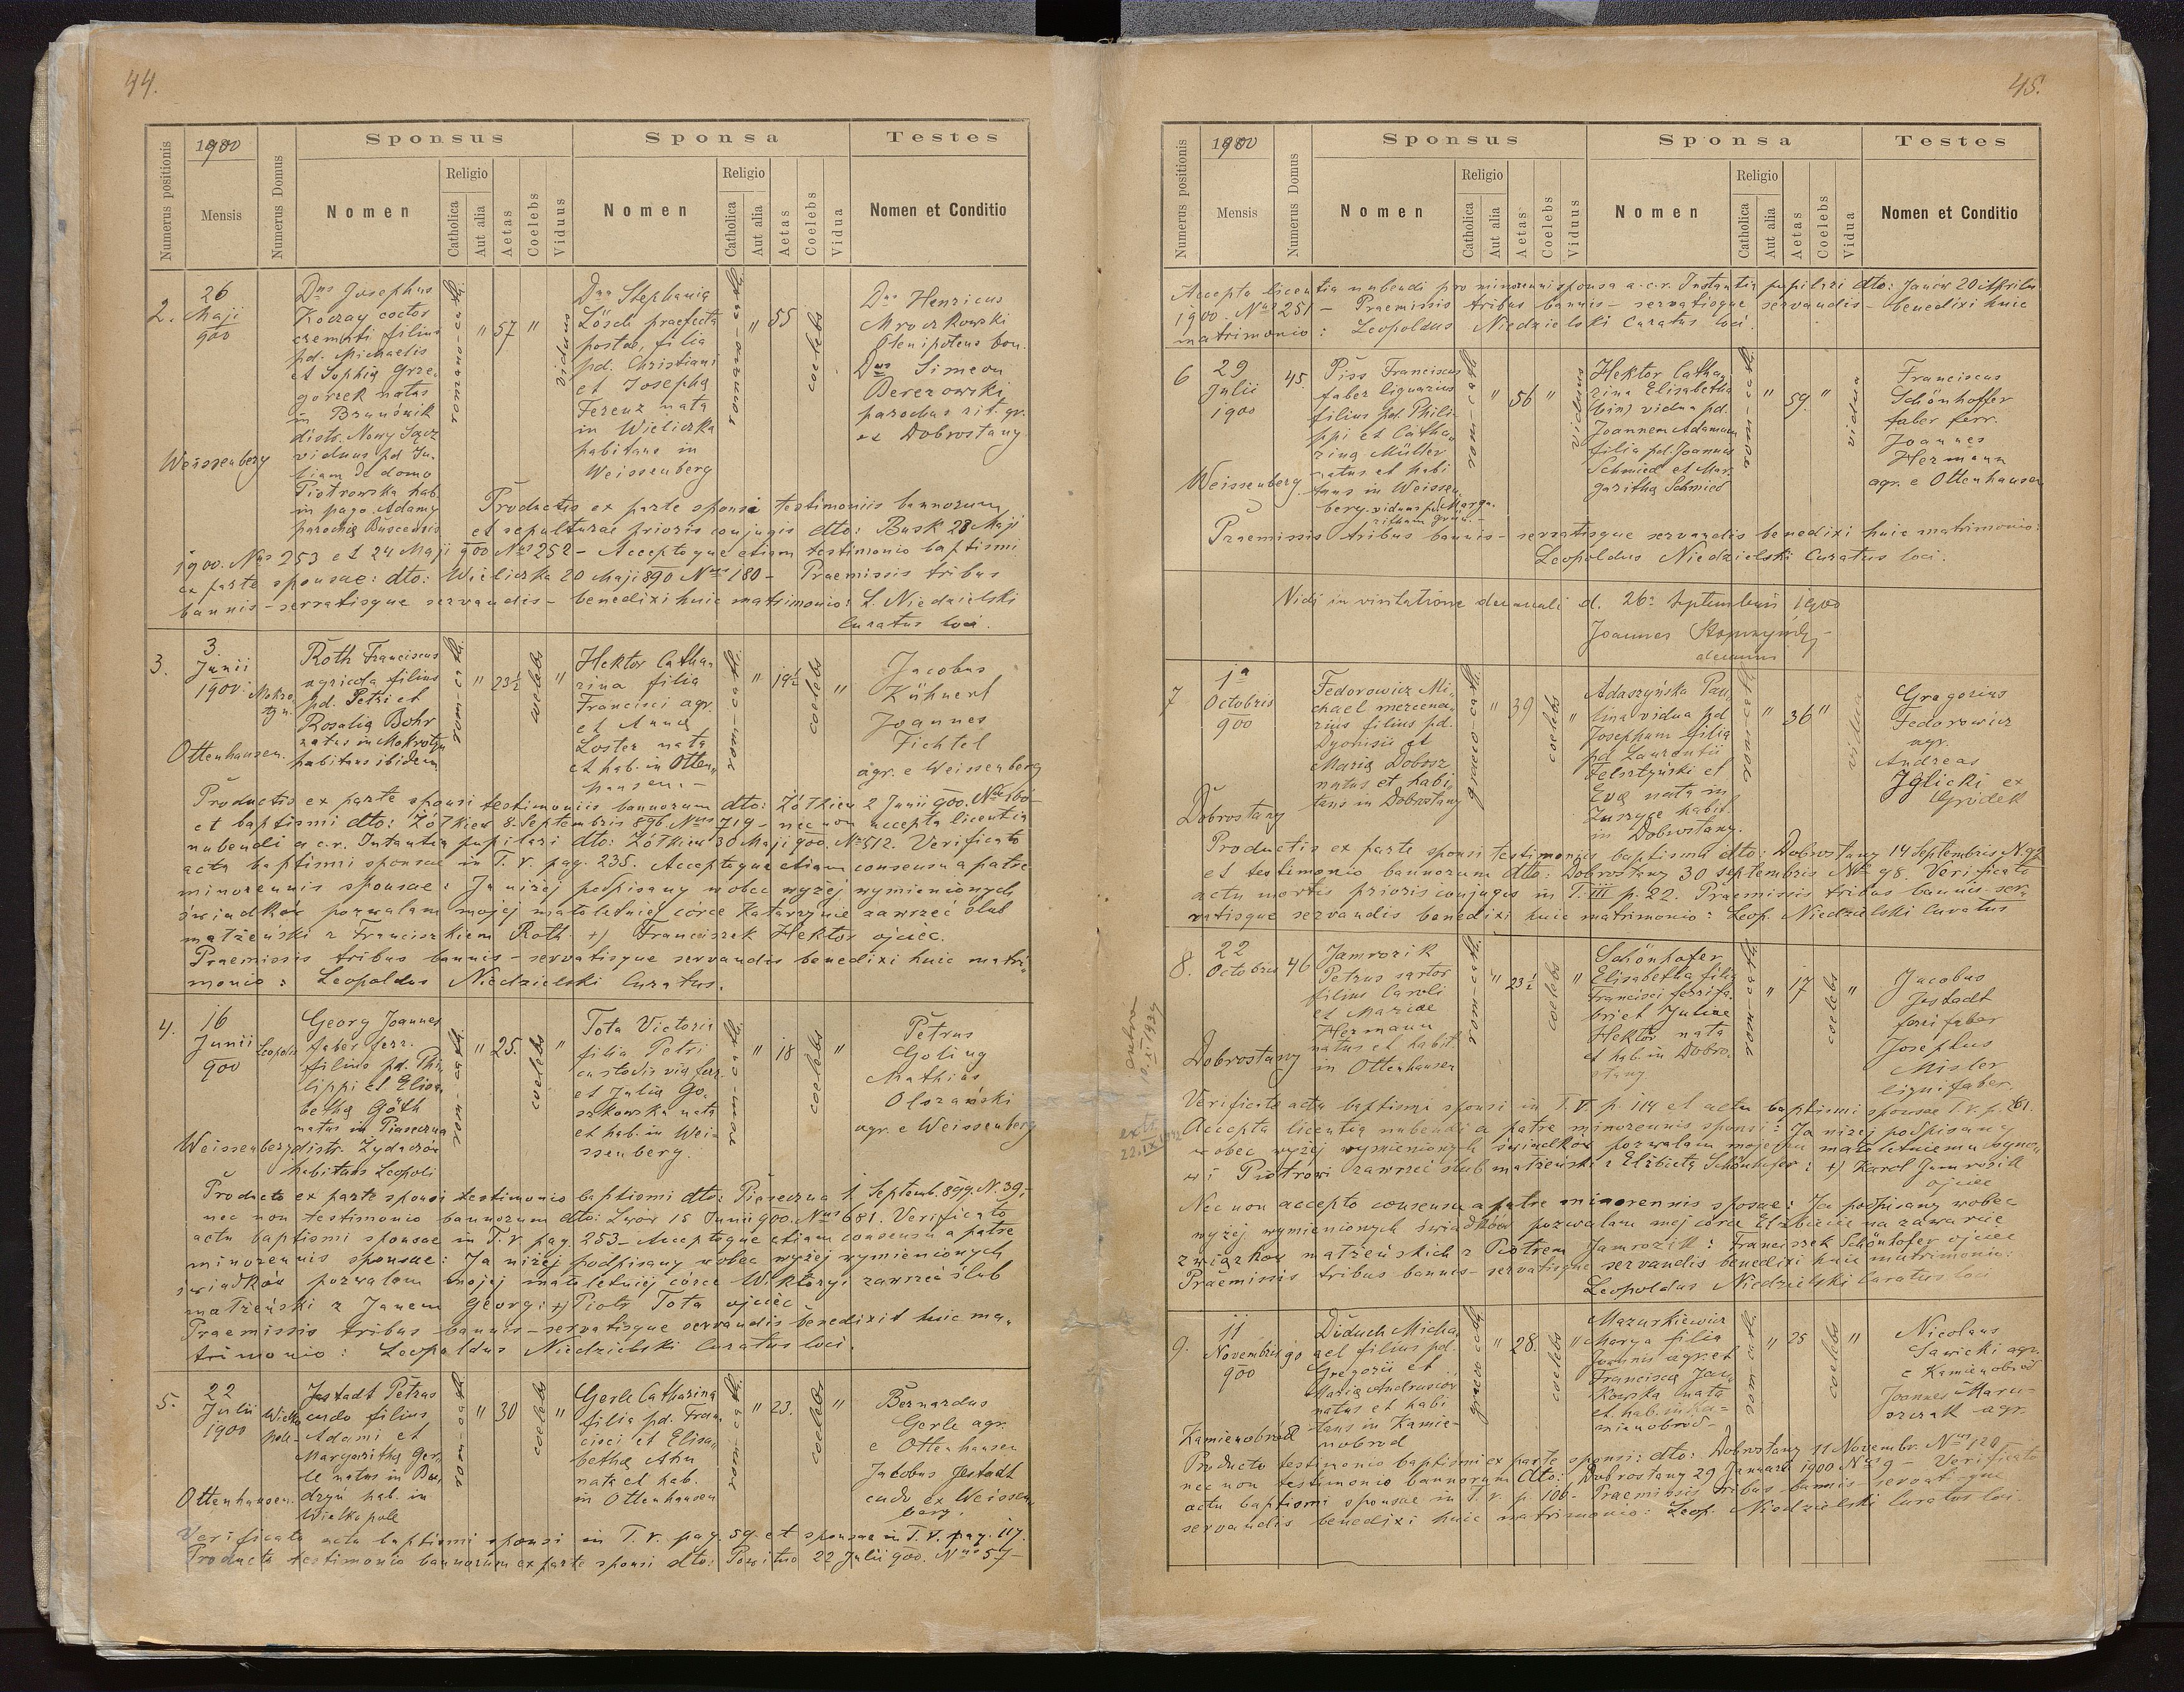 44.
Numerus positionis
1900
Mensis
Numerus Domus
Sponsus
Nomen
Religio
Catholica
Aut alia
Aetas
Coelebs
Viduus
Sponsa
Nomen
Religio
Catholica
Aut alia
Aetas
Coelebs
Vidua
Testes
Nomen et Conditio
2.
26
Maji
900
Weissenberg
Dnus Josephus
Koczay coctor
cremati filius
pd. Michaelis
et Sophia Grze-
gorzek natus
in
distr. Nowy Sącz
viduus pd Ju-
liam de domo
Piotrowska hab.
in pago Adamy
parochia Buscensis
rom-cath
" 57 "
viduus
Dna Stephania
Lösch praefecta
postae, filia
pd. Christiani
et Josepha
Ferenz nata
in Wieliczka
habitans in
Weissenberg
rom-cath
" 55
coelebs
Dnus Henricus
Mroczkowski
plenipotens bon.
Dnus Simeon
Berezowski
parochus rit. gr.
ex Dobrostany
Productis ex parte sponsi testimoniis bannorum
et sepulturae prioris conjugis dto: Busk 28 Maji
1900. Nus 253 et 24 Maji 900 Nus 252 - Acceptoque etiam testimonio baptismi
ex parte sponsae: dto: Wieliczka 20 Maji 890 Nus 180 - Praemissis tribus
bannis - servatisque servandis - benedixi huic matrimonio: L. Niedzielski
Curatus loci.
3.
3.
Junii
1900.
Mokro-
tyn.
Ottenhausen.
Roth Franciscus
agricola filius
pd. Petri et
Rosalia Bohr
natus in Mokrotyn
habitans ibidem
rom-cath
" 23½
coelebs
"
Hektor Catha-
rina filia
Francisci agr.
et Anna
Loster nata
et hab. in Otten-
hausen. -
rom-cath
" 19½
coelebs
"
Jacobus
Kühnert
Joannes
Fichtel
agr. e Weissenberg
Productis ex parte sponsi testimoniis bannorum dto: Żółkiew 2 Junii 900. Nus
et baptismi dto: Żółkiew 8. Septembris 896 Nus 719 - nec non accepta licentia
nubendi a c.r. Instantia pupilari dto: Żółkiew 30 Maji 900. Nus 512. Verificato
actu baptismi sponsae in T. V. pag. 235. Acceptoque etiam consensu a patre
minorennis sponsae: Ja niżej podpisany wobec wyżej wymienionych
świadków pozwalam mojej małoletniej córce Katarzynie zawrzeć ślub
małżeński z Franciszkiem Roth. +) Franciszek Hektor ojciec.
Praemissis tribus bannis - servatisque servandis benedixi huic matri-
monio: Leopoldus Niedzielski Curatus.
4.
16
Junii
900
Leopolis
Weissenberg
Georg Joannes
faber ferr.
filius pd. Phi-
lippi et Elisa-
betha Göth
natus in Piaseczna
distr. Żydaczów
habitans Leopoli
rom-cath
" 25.
coelebs
"
Tota Victoria
filia Petri
custodis via ferr.
et Julia Go-
rakowska nata
et hab. in Wei-
ssenberg.
rom-cath
" 18
coelebs
"
Petrus
Goling
Mathias
Olszański
agr. e Weissenberg
Producto ex parte sponsi testimonio baptismi dto: Piaseczna 1. Septemb. 899. N. 39,-
nec non testimonio bannorum dto: Lwów 15 Junii 900. Nus 681. Verificato
actu baptismi sponsae in T. V. pag. 253 - Acceptoque etiam consensu a patre
minorennis sponsae: Ja niżej podpisany wobec wyżej wymienionych
świadków pozwalam mojej małoletniej córce Wiktoryi zawrzeć ślub
małżeński z Janem Georg: +) Piotr Tota ojciec
Praemissis tribus bannis - servatisque servandis benedixit huic ma-
trimonio: Leopoldus Niedzielski Curatus loci.
5.
22
Julii
1900
Wielko-
pole-
Ottenhausen.
Jestadt Petrus
cudo filius
Adami et
Margaritha Ger-
le natus in
hab. in
Wielkopole
rom-cath
" 30
coelebs
"
Gerle Catharina
filia pd. Fran-
cisci et Elisa-
betha
nata et hab.
in Ottenhausen
rom-cath
" 23.
coelebs
"
Bernardus
Gerle agr.
e Ottenhausen
Jacobus Jestadt
cudo ex Weissen-
berg.
Verificato actu baptismi sponsi in T. V. pag. 59. et sponsae in T. V. pag. 117.
Producto testimonio bannorum ex parte sponsi dto: 22 Julii 900. Nus 57-
45.
Numerus positionis
1900
Mensis
Numerus Domus
Sponsus
Nomen
Religio
Catholica
Aut alia
Aetas
Coelebs
Viduus
Sponsa
Nomen
Religio
Catholica
Aut alia
Aetas
Coelebs
Vidua
Testes
Nomen et Conditio
Accepta licentia nubendi pro minorenni sponsa a c.r. Instantia pupilari dto: Janów 20 Aprilis
1900. Nus 251 - Praemissis tribus bannis - servatisque servandis - benedixi huic
matrimonio: Leopoldus Niedzielski Curatus loci.
6
29
Julii
1900
45.
Weissenberg.
Piss Franciscus
faber lignarius
filius pd. Phili-
ppi et Catha-
rina Müller
natus et habi
tans in Weissen-
berg. viduus pd. Marga-
ritham
rom-cath
" 56 "
viduus
Hektor Catha-
rina Elisabetha
(bin) vidua pd.
Joannem Adamum
filia pd. Joannis
Schmied et Mar-
garitha Schmied
rom-cath
" 59. "
vidua
Franciscus
Schönhoffer
faber ferr.
Joannes
Hermann
agr. e Ottenhausen
Praemissis tribus bannis - servatisque servandis benedixi huic matrimonio:
Leopoldus Niedzielski Curatus loci.
Vidi in visitatione decanali d. 26a Septembris 1900
Joannes
decanus
7
1a
Octobris
900
Dobrostany
Fedorowicz Mi-
chael mercena-
rius filius pd.
Dyonisii et
Maria Dobosz
natus et habi-
tans in Dobrostany
graeco-cath.
" 39
coelebs
"
Adaszyńska Pau-
lina vidua pd
Josephum filia
pd Laurentii
Felsztyński et
Eva nata in
habit.
in Dobrostany.
rom-cath
" 36 "
vidua
Gregorius
Fedorowicz
agr.
Andreas
Iglicki ex
Gródek
Productis ex parte sponsi testimoniis baptismi dto: Dobrostany 14 Septembris N 92
et testimonio bannorum dto: Dobrostany 30 Septembris Nus 98. Verificato
actu mortis prioris conjugis in T. III p. 22. Praemissis tribus bannis ser-
vatisque servandis benedixi huic matrimonio: Leop. Niedzielski Curatus
8.
22
Octobris
46
Dobrostany
Jamrozik
Petrus sartor
filius Caroli
et Mariae
Hermann
natus et habit.
in Ottenhausen
rom-cath.
" 23½
coelebs
"
Schönhofer
Elisabetha filia
Francisci ferrifa-
bri et Juliae
Hektor nata
et hab. in Dobro-
stany.
rom-cath
" 17
coelebs
"
Jacobus
Jestadt
ferri faber
Josephus
Misler
lignifaber.
Verificato actu baptismi sponsi in T. V. p. 114 et actu baptismi sponsae T. V. p. 261.
Accepta licentia nubendi a patre minorennis sponsi: Ja niżej podpisany
wobec wyżej wymienionych świadków pozwalam mojemu małoletniemu syno-
wi Piotrowi zawrzeć ślub małżeński z Elżbietą Schönhofer: +) Karol Jamrozik
ojciec
Nec non accepto consensu a patre minorennis sposae: Ja podpisany wobec
wyżej wymienionych świadków pozwalam mej córce Elżbiecie na zawarcie
związków małżeńskich z Piotrem Jamrozik: Franciszek Schönhofer ojciec
Praemissis tribus bannis - servatisque servandis benedixi huic matrimonio:
Leopoldus Niedzielski Curatus loci
9.
11
Novembris
900
90
Kamienobród
Diduch Micha-
ael filius pd.
Gregorii et
Maria Andrusiów
natus et habi
tans in Kamie-
nobrod
graeco cath
" 28.
coelebs
"
Mazurkiewicz
Marya filia
Joannis agr. et
Francisca Jan-
kowska nata
et. hab. in Ka-
mienobrod-
rom cath
" 25
coelebs
"
Nicolaus
Sawicki agr.
e Kamienobrod
Joannes
agr.
Producto testimonio baptismi ex parte sponsi: dto: Dobrostany 11 Novembr. Nus 120
nec non testimonio bannorum dto: Dobrostany 29 Januarii 1900 Nus 9 - Verificato
actu baptismi sponsae in T. V. p. 106 - Praemissis tribus bannis servatisque
servandis benedixi huic matrimonio: Leop. Niedzielski Curatus loci